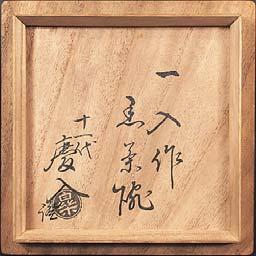 一入作
黒茶碗
十一代
慶入